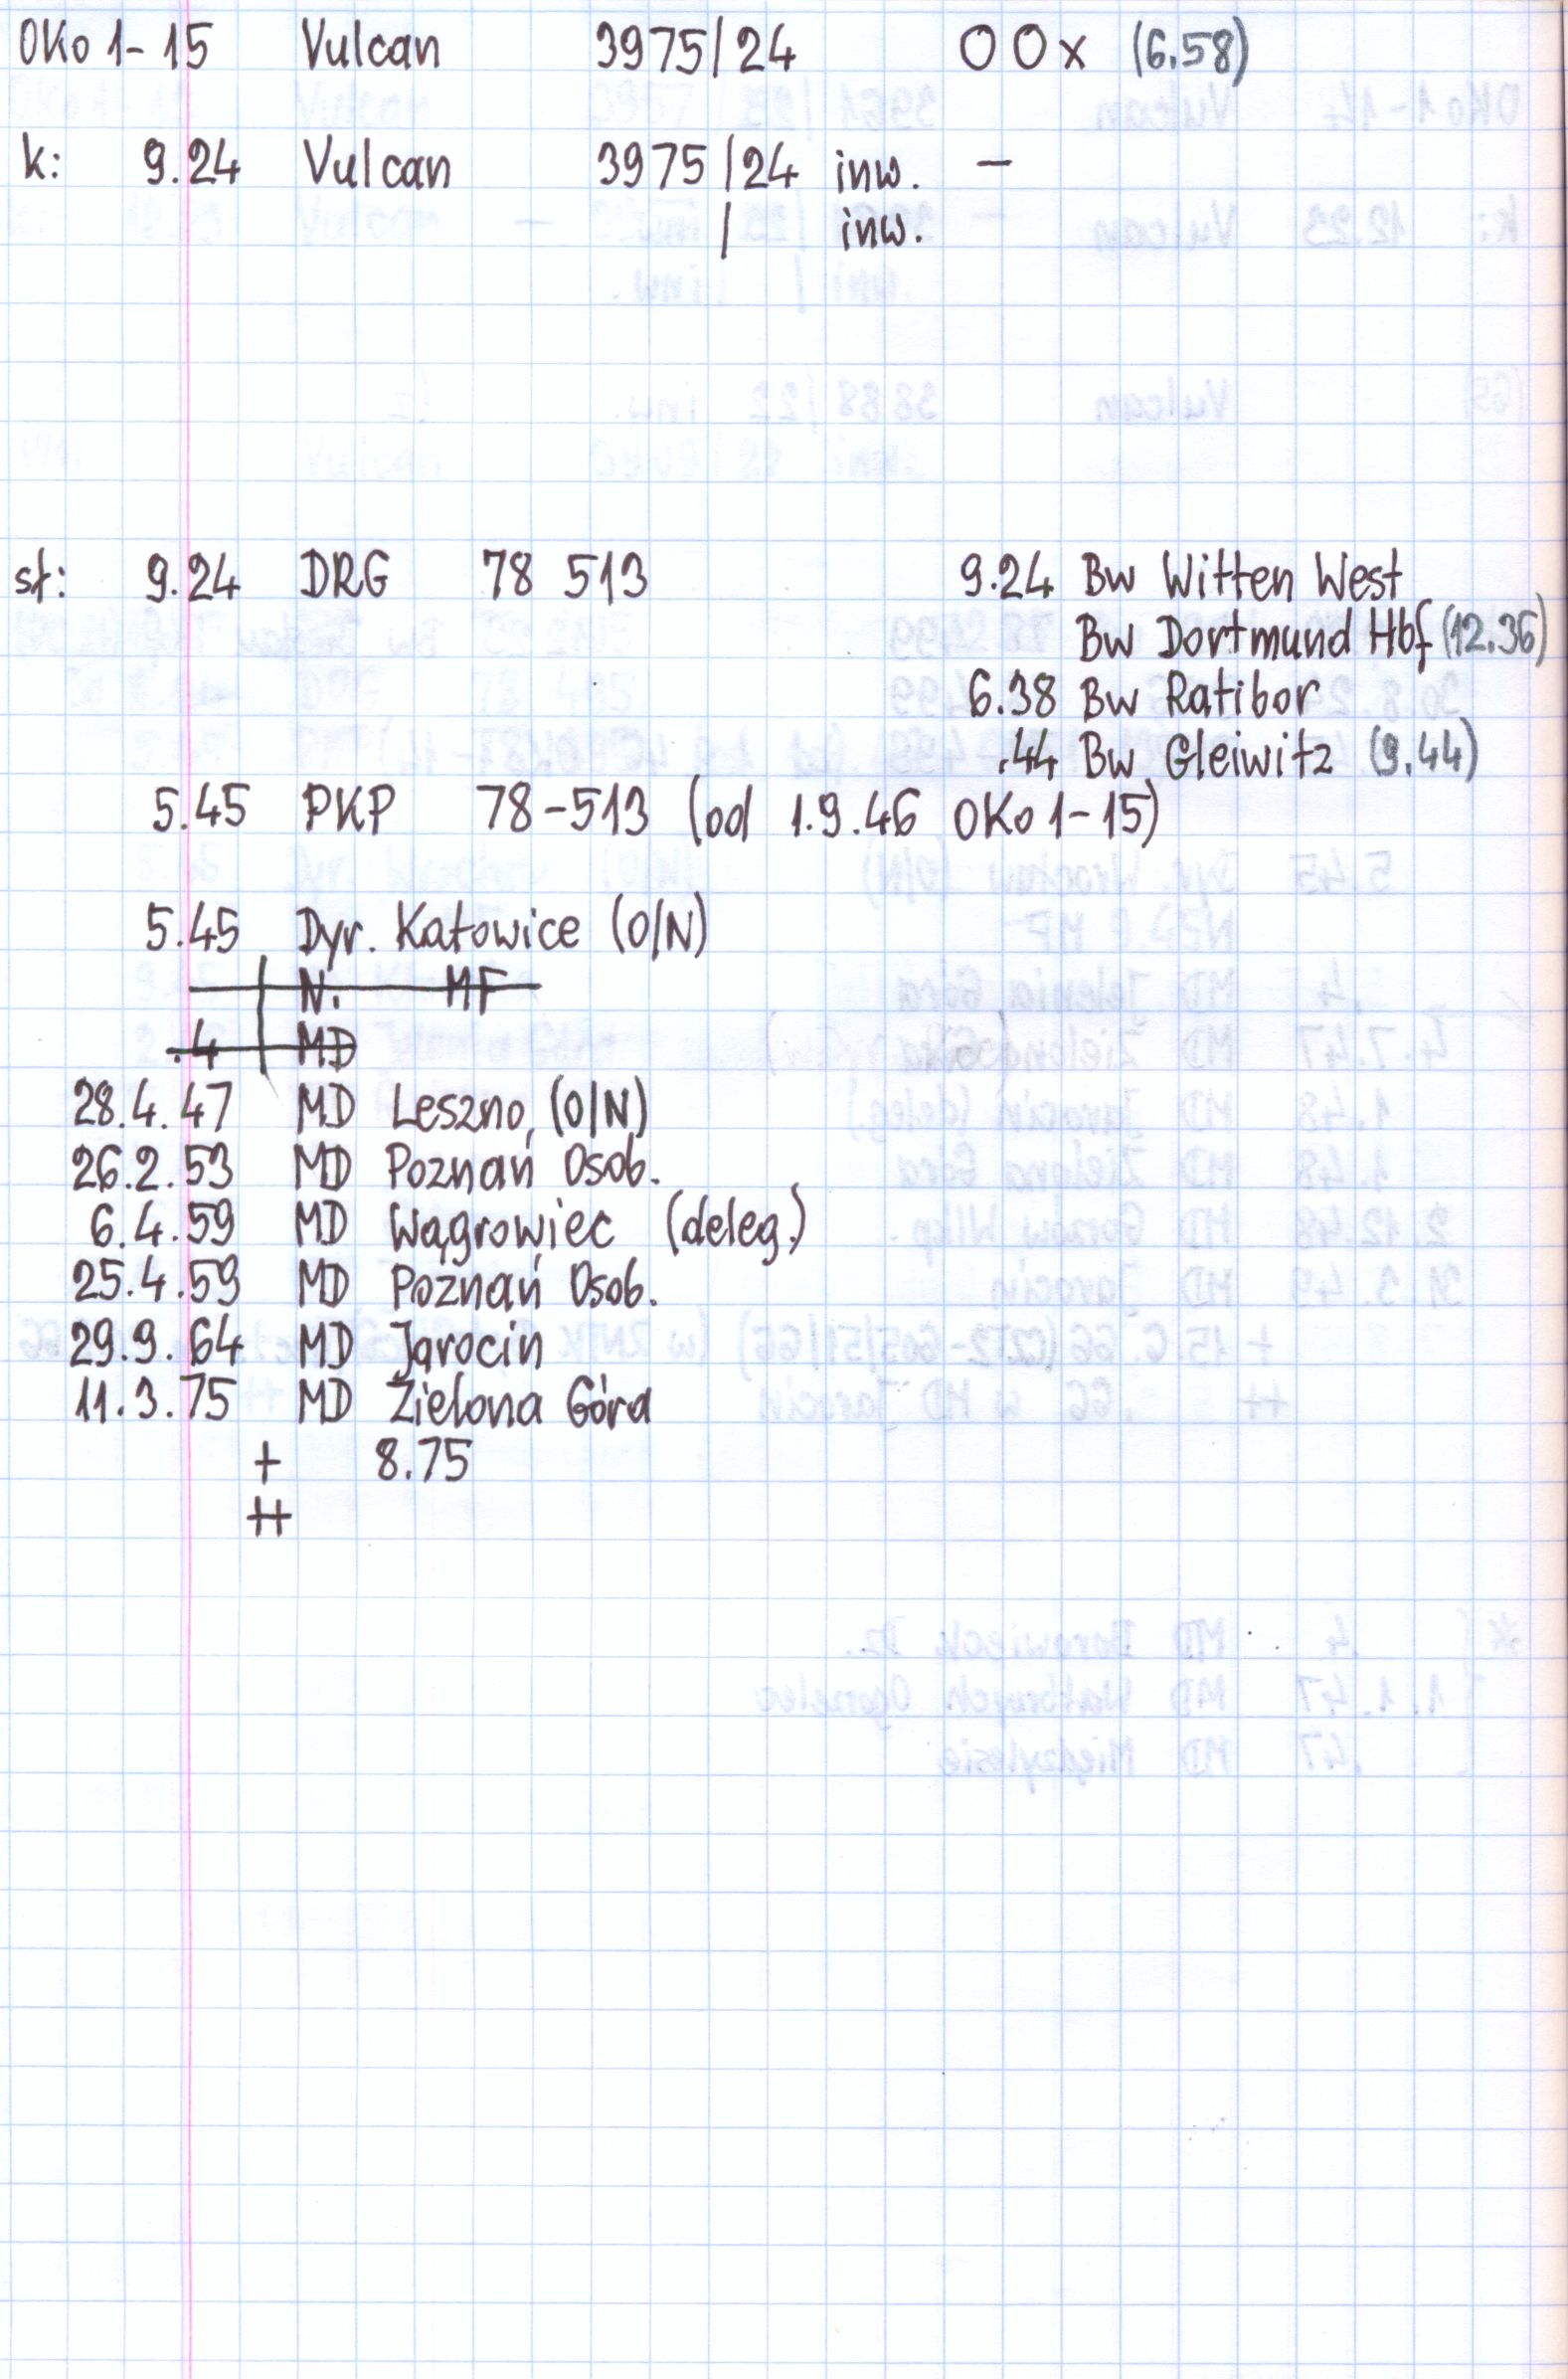 OKo 1-15 Vulcan 3975/24 OOx (6.58)
k: 9.24 Vulcan 3975/24 inw. –
/ inw.
st: 9.24 DRG 78 513 9.24 Bw Witten West
Bw Dortmund Hbf (12.36)
6.38 Bw Ratibor
.44 Bw Gleiwitz (9.44)
5.45 PKP 78-513 (od 1.9.46 OKo 1-15)
5.45 Dyr. Katowice (O/N)
N. MF
.4 MD
28.4.47 MD Leszno, (O/N)
26.2.53 MD Poznań Osob.
6.4.59 MD Wągrowiec (deleg.)
25.4.59 MD Poznań Osob.
29.9.64 MD Jarocin
11.3.75 MD Zielona Góra
+ 8.75
++